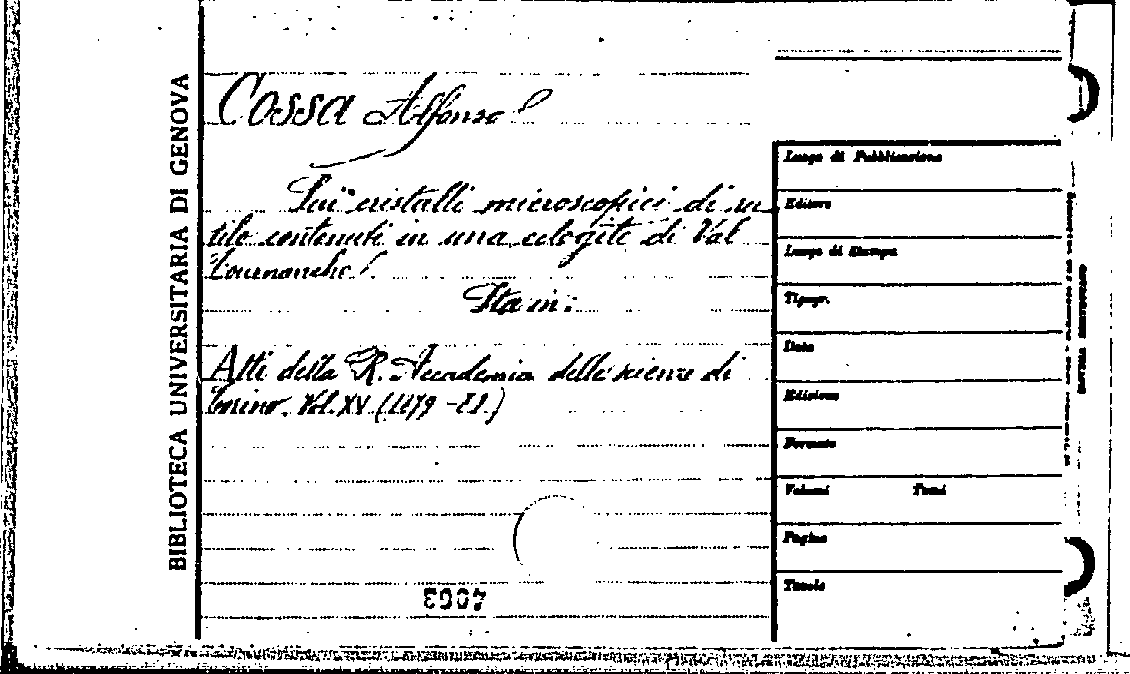 BIBLIOTECA UNIVERSITARIA DI GENOVA
COSSA Alfonso
Sui cristalli microscopici di ru
tilo contenuti in una eclogite di Val
Tournanche.
Sta in:
Atti della R. Accademia delle scienze di
Torino. Vol. XV (1879 -
Luogo di Pubblicazione
Editore
Luogo di Stampa
Tipogr.
Data
Edizione
Formato
Volumi Tomi
Pagine
Tavole